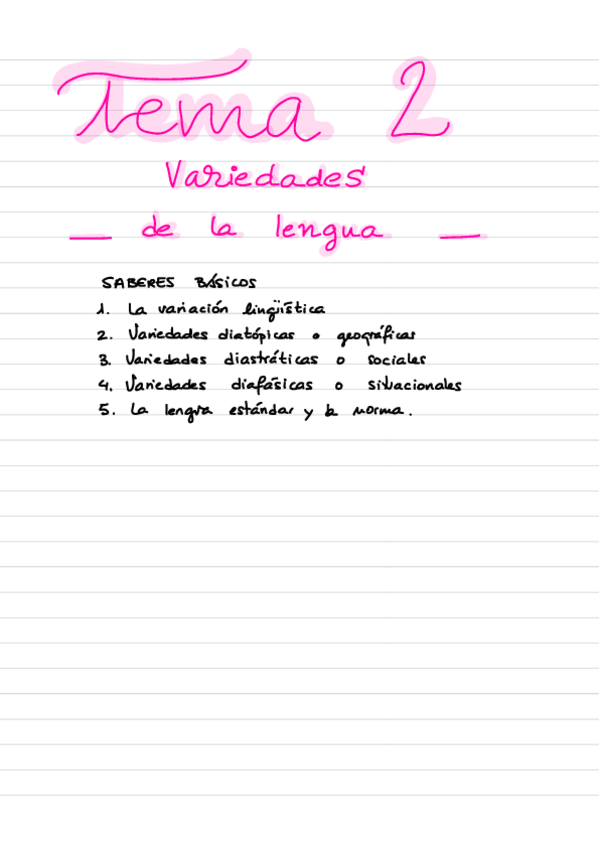 Tema 2
Variedades
— de la lengua —
SABERES BÁSICOS
1. La variación lingüística
2. Variedades diatópicas o geográficas
3. Variedades diastráticas o sociales
4. Variedades diafásicas o situacionales
5. La lengua estándar y la norma.